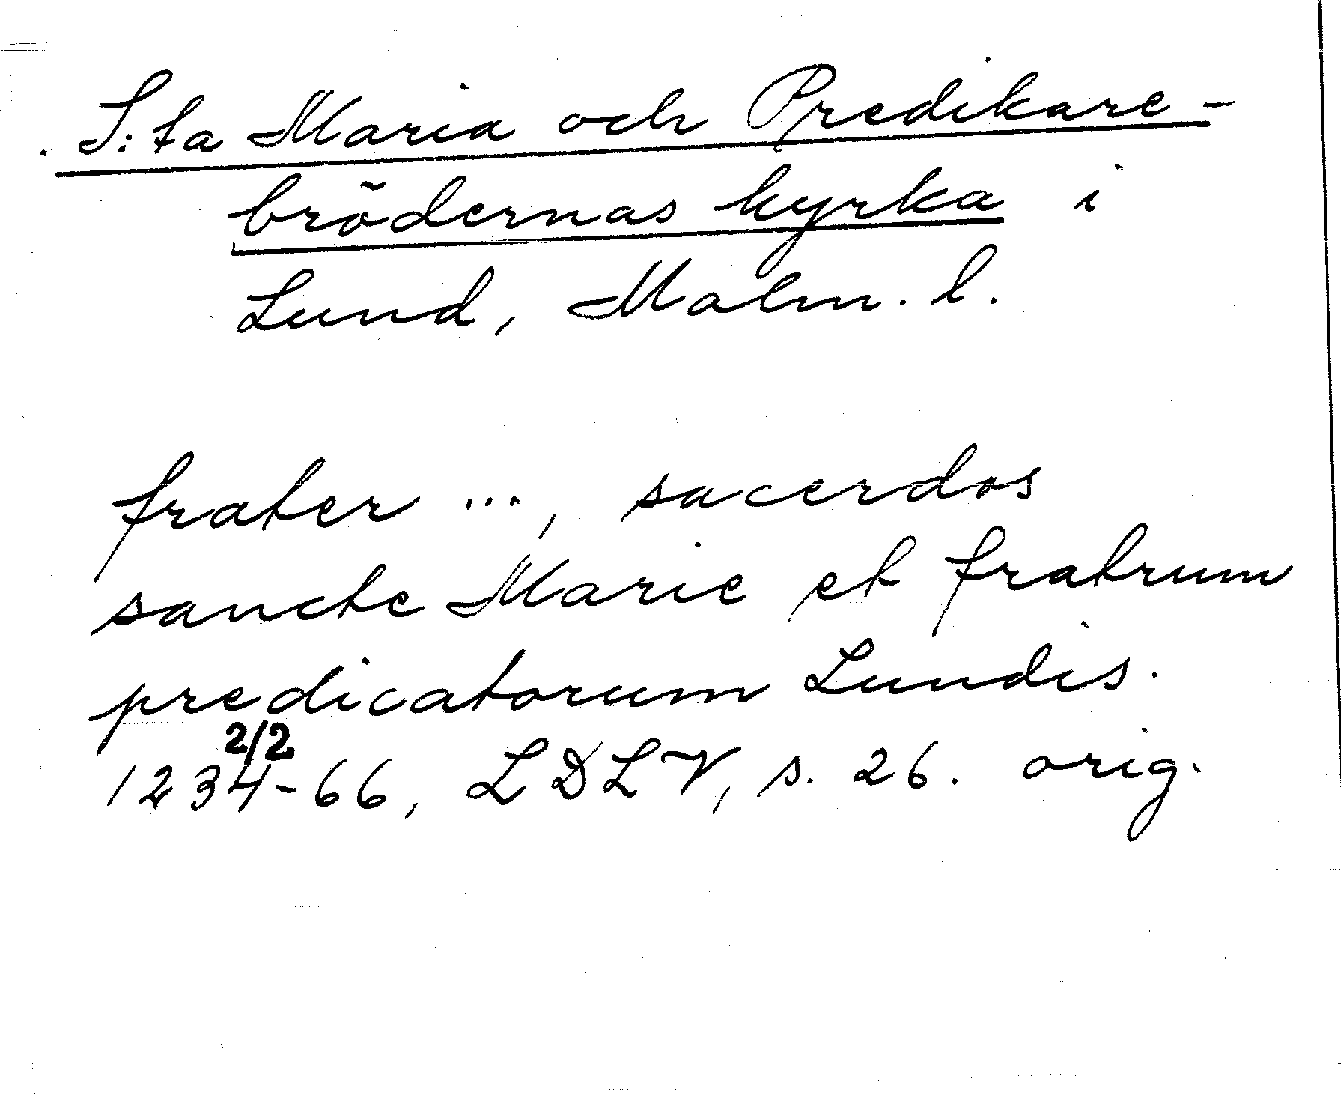 S:ta Maria och Predikare-
brödernas kyrka i
Lund, Malm. l.
frater ..., sacerdos
sancte Marie et fratrum
predicatorum Lundis.
2/2
1234-66, LDLV, s. 26. orig.